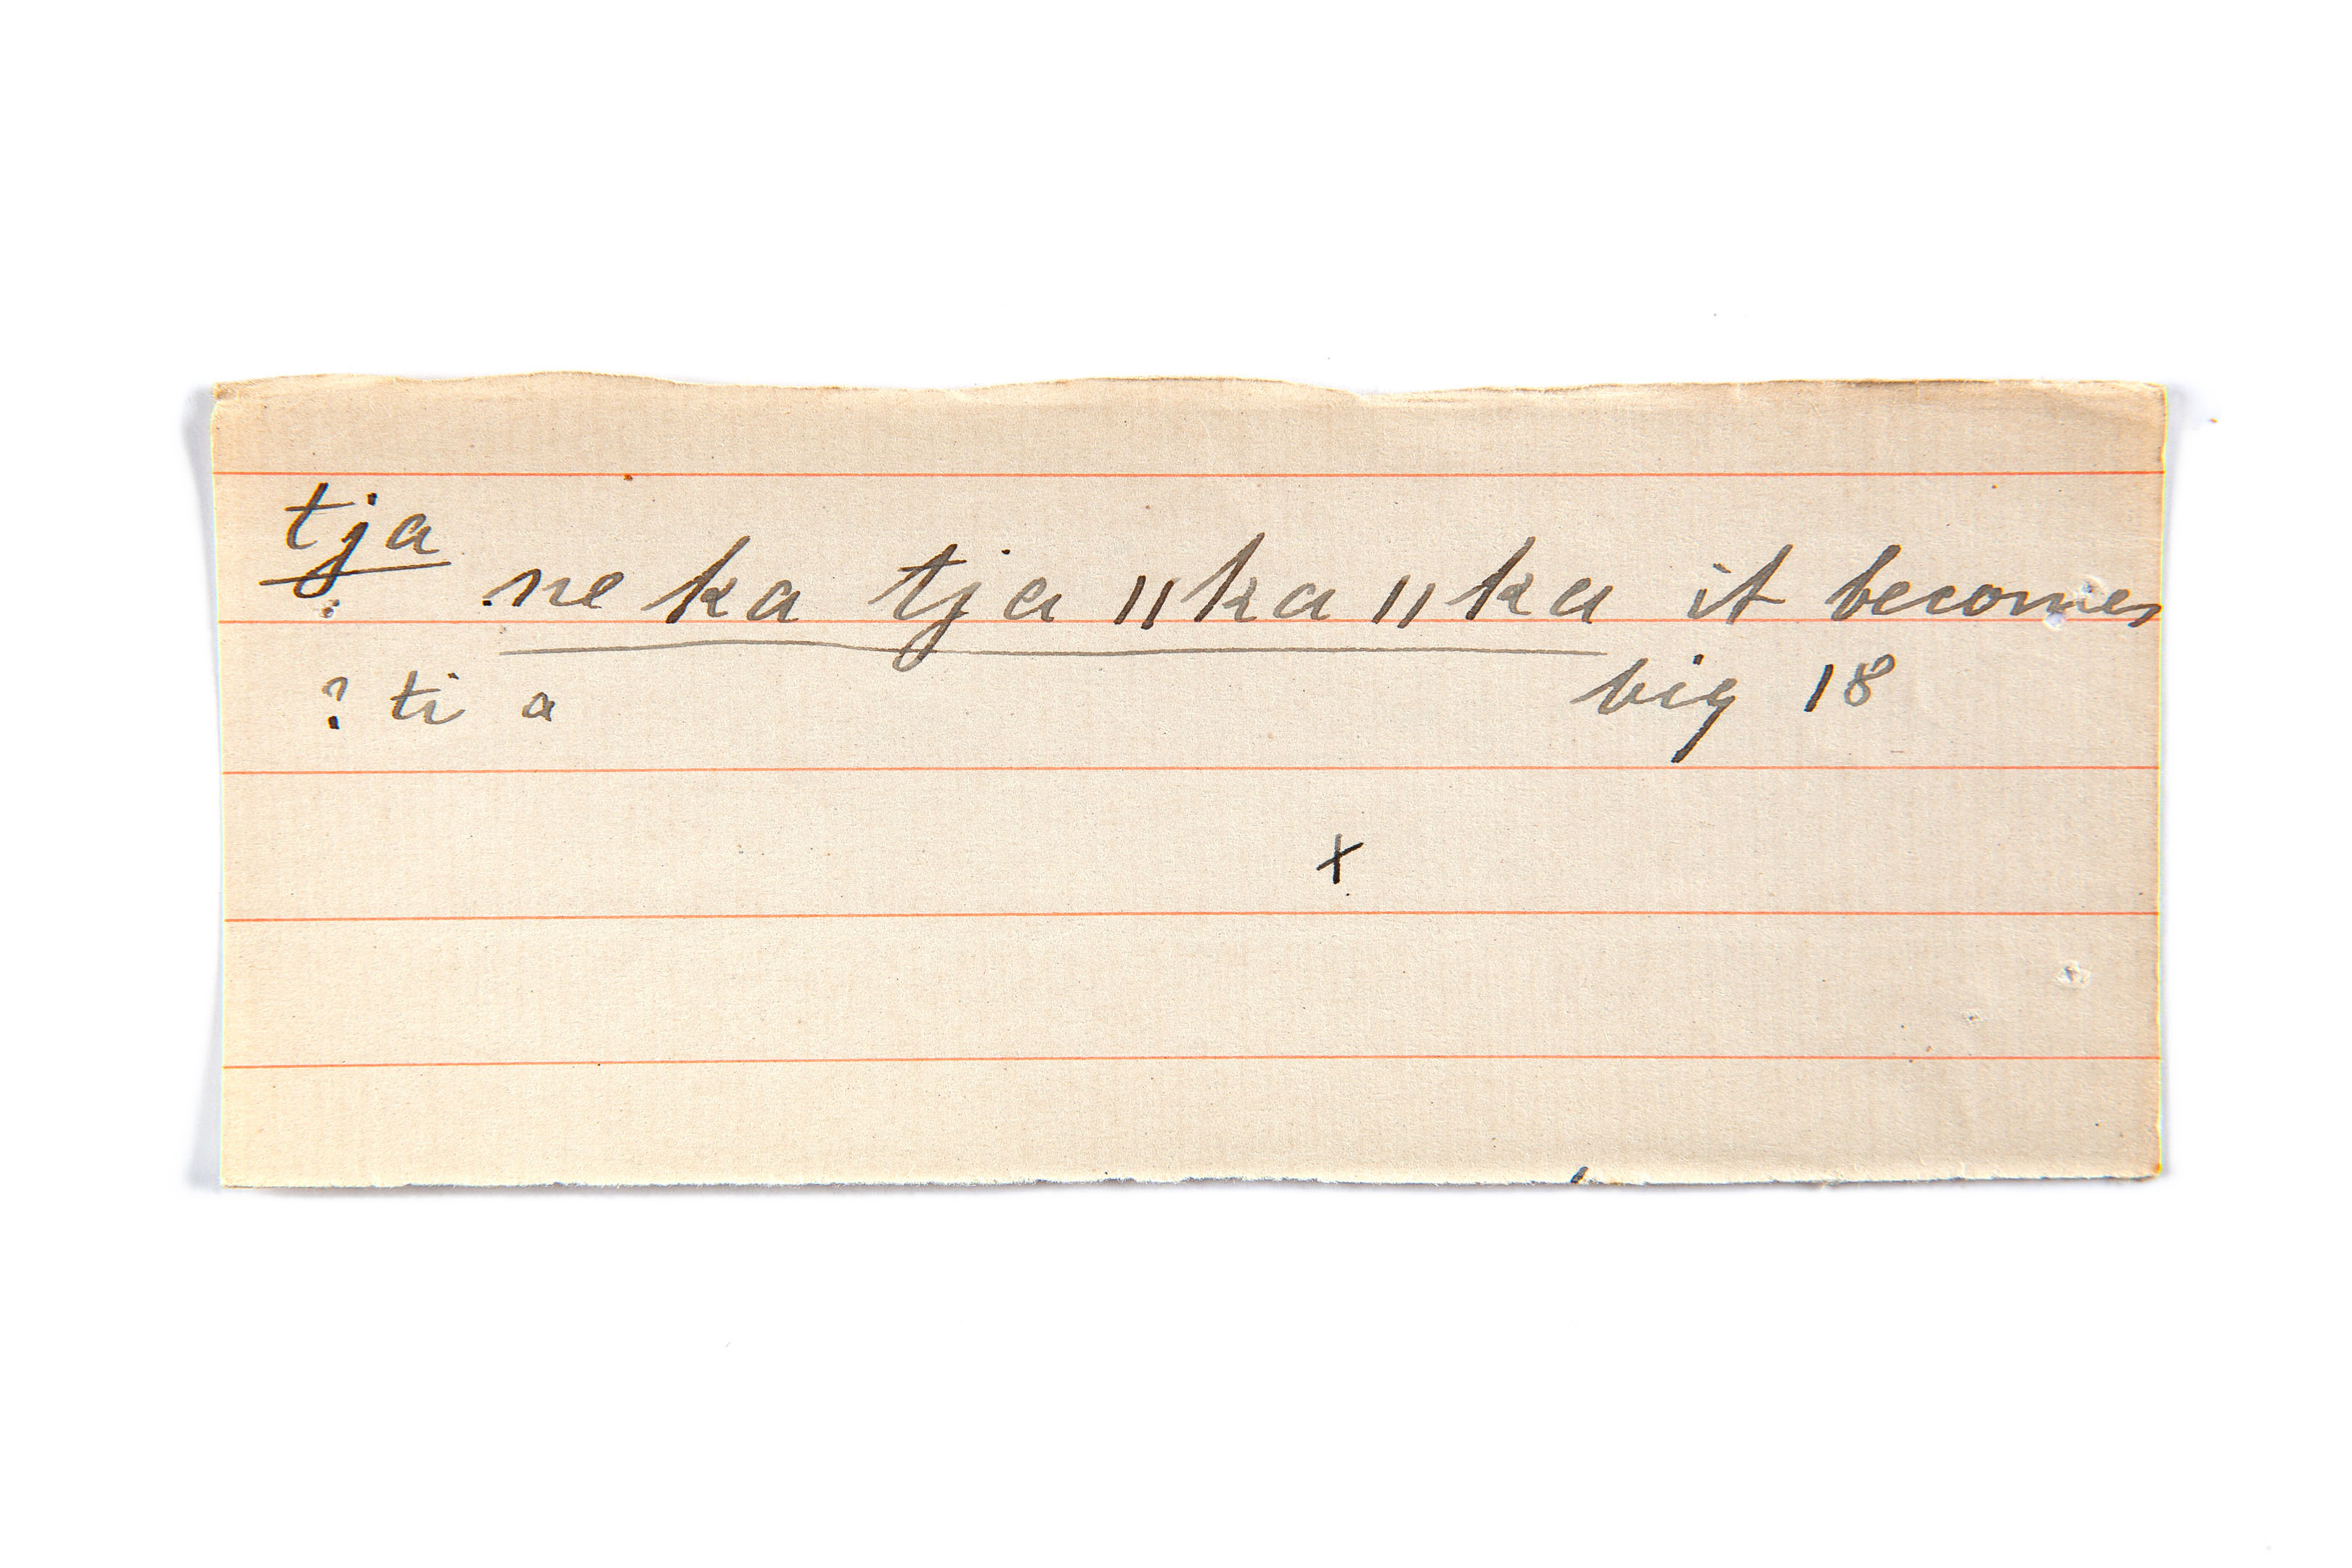 tja
ne ka tja ||ka ||ka it becomes
? ti a big 18
x